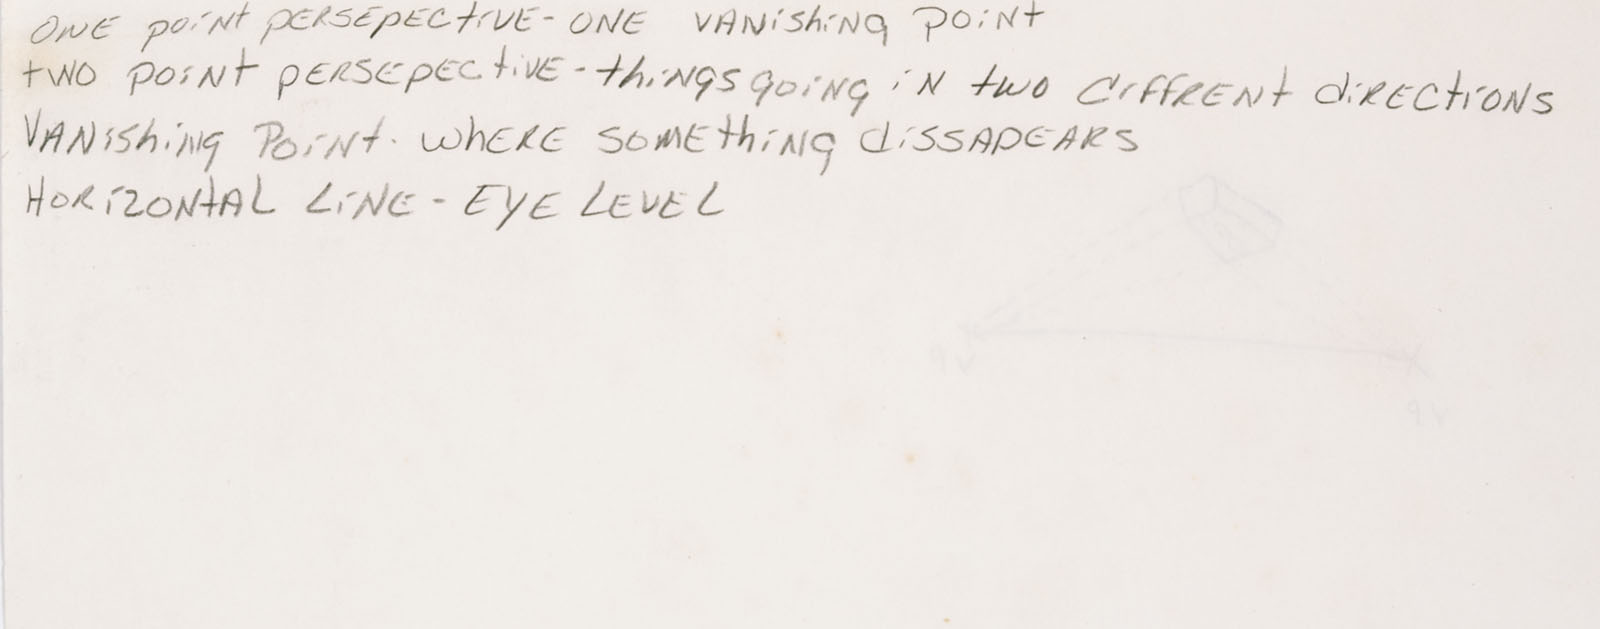 ONE point PERSEPECTIVE - ONE VANishiNg POiNt
tWO POiNt PERSEPECtiVE - thiNgS gOiNg iN two diFFRENt diRECtiONS
VANiShiNg POiNt. WhERE SOMEthiNg diSSAPEARS
HORiZONtAL LiNE - EYE LEVEL
VP
VP